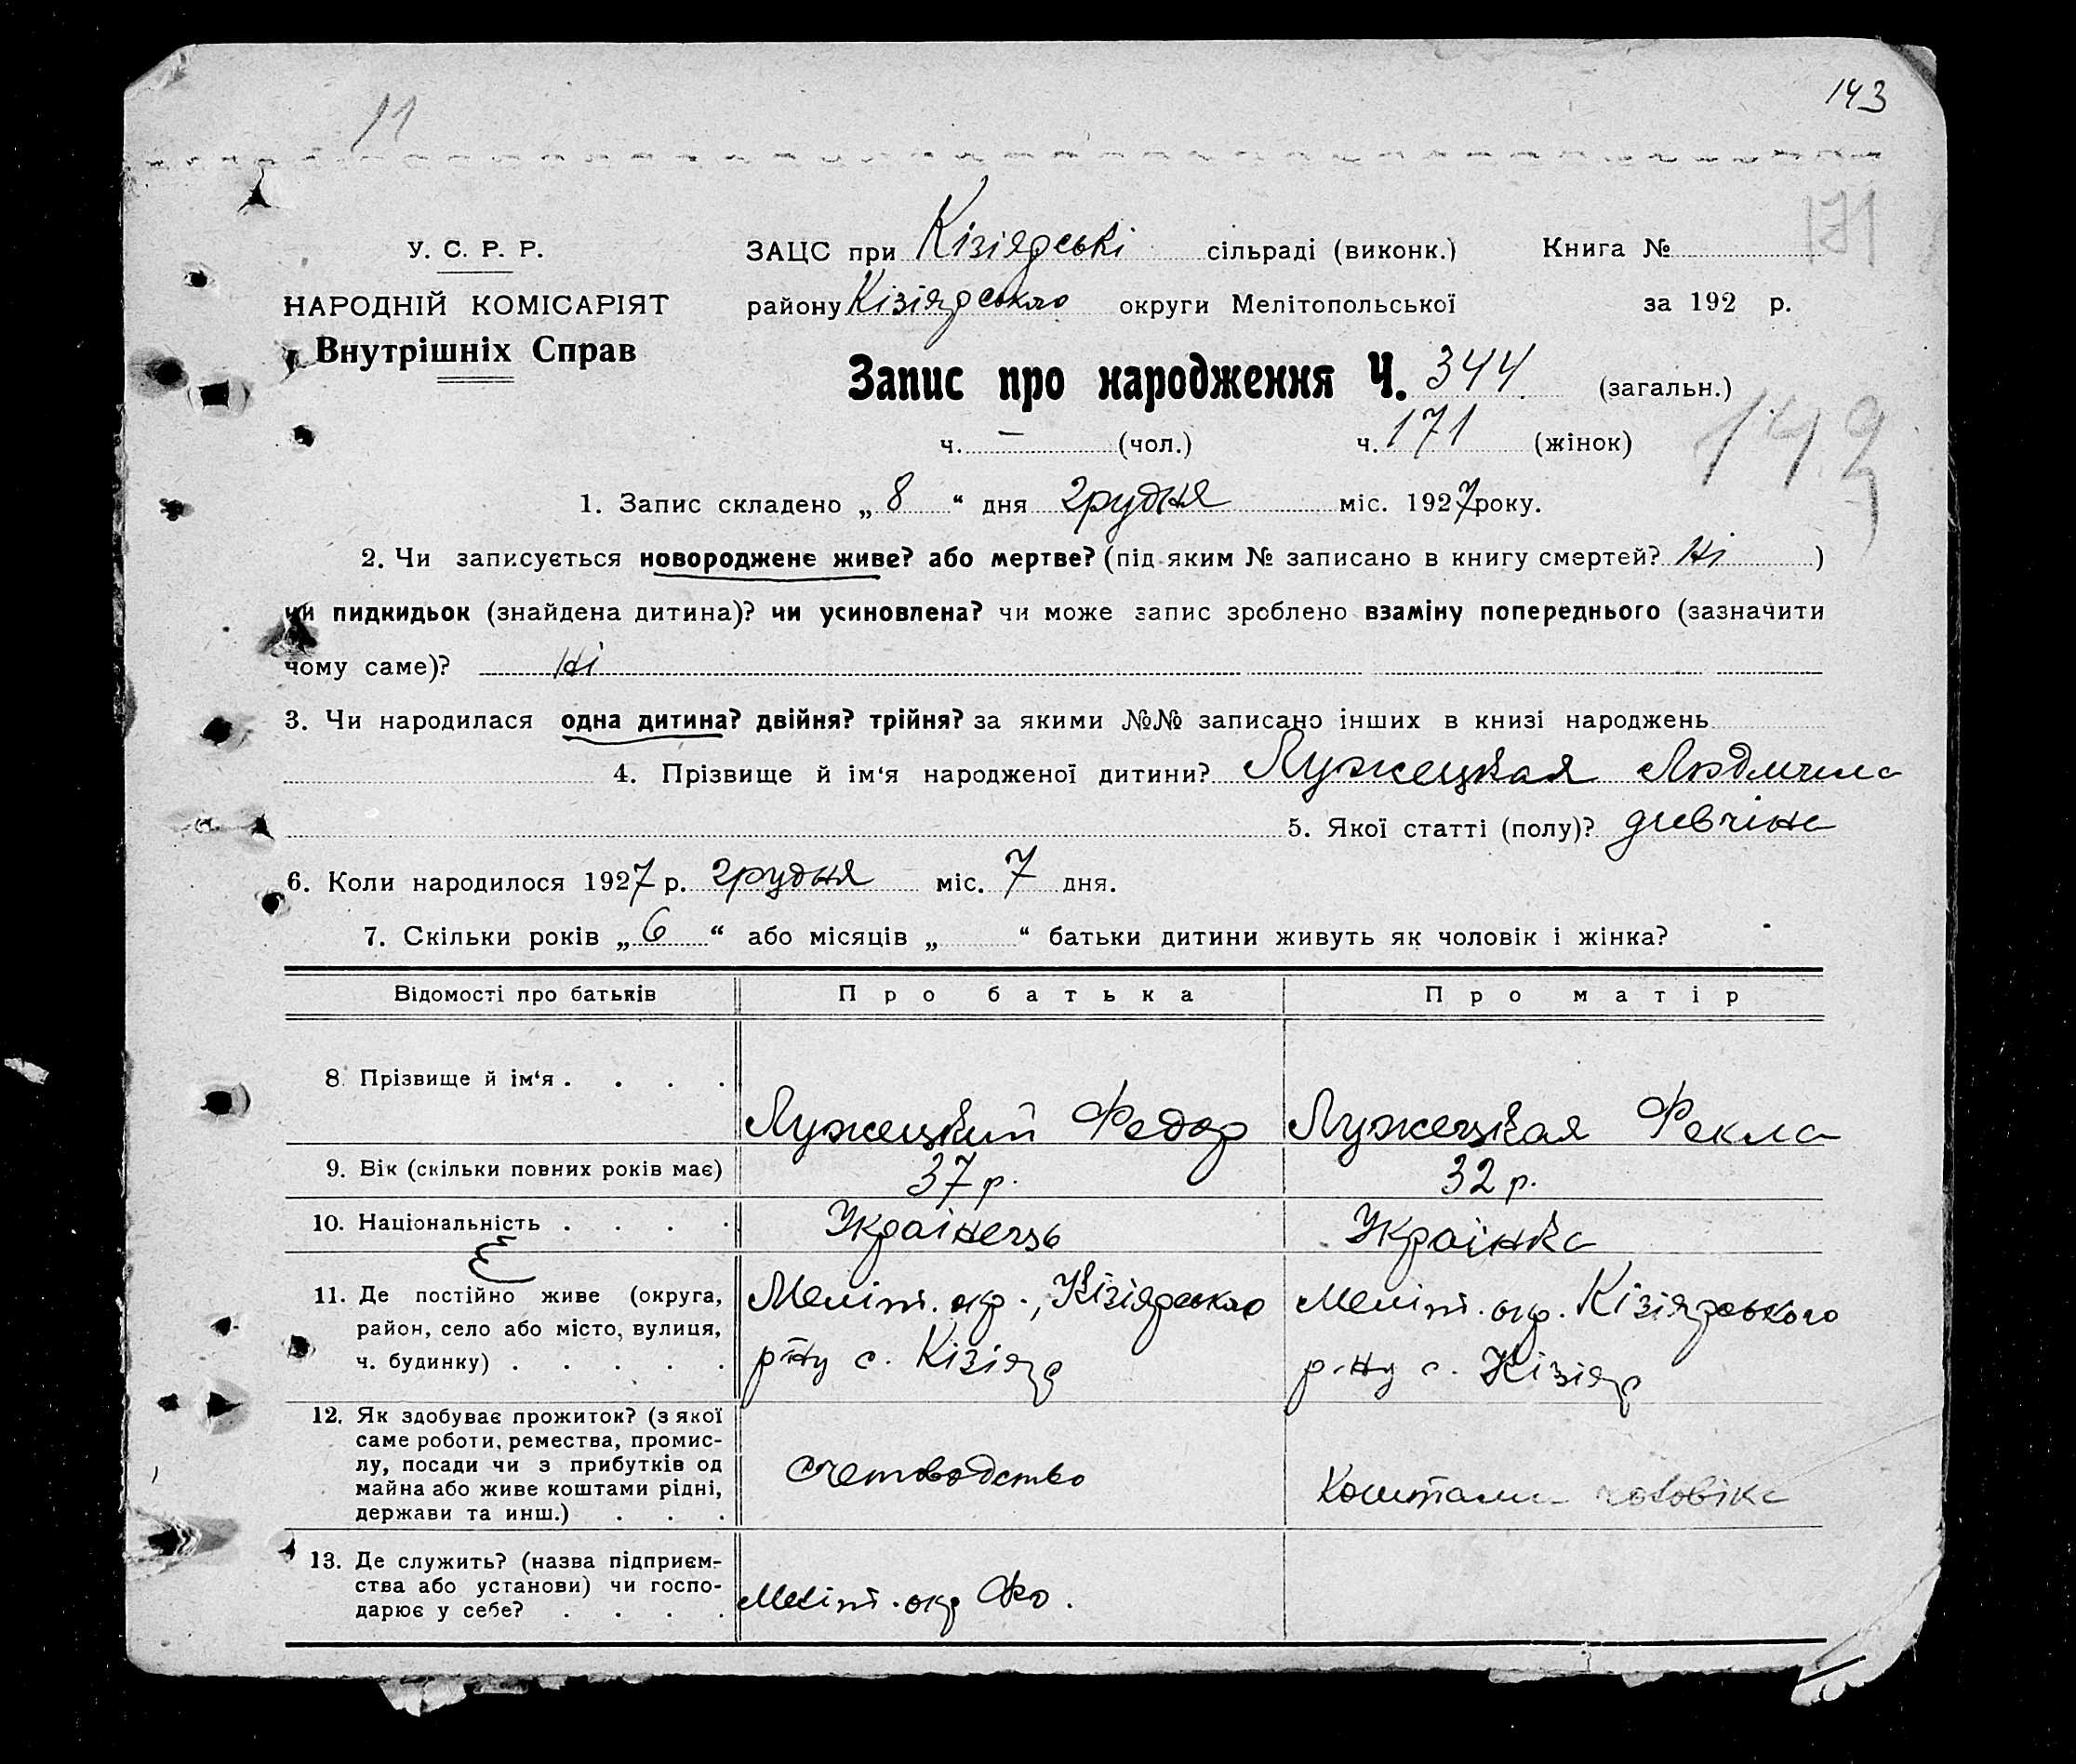 143
11
171
У. С. Р. Р.
НАРОДНІЙ КОМІСАРІЯТ
Внутрішніх Справ
ЗАЦС при Кізіярські сільраді (виконк.) Книга №
району Кізіярського округи Мелітопольської за 192 р.
Запис про народження Ч. 344 (загальн.)
ч. — (чол.) ч. 171 (жінок)
142
1. Запис складено „ 8 “ дня грудня міс. 1927 року.
2. Чи записується новороджене живе? або мертве? (під яким № записано в книгу смертей? Ні )
чи пидкидьок (знайдена дитина)? чи усиновлена? чи може запис зроблено взаміну попереднього (зазначити
чому саме)? Ні
3. Чи народилася одна дитина? двійня? трійня? за якими №№ записано інших в книзі народжень
4. Прізвище й ім‘я народженої дитини? Лужецкая Людмила
5. Якої статті (полу)? дівчіна
6. Коли народилося 1927 р. грудня міс. 7 дня.
7. Скільки років „ 6 “ або місяців „ “ батьки дитини живуть як чоловік і жінка?
Відомості про батьків Про батька Про матір
8. Прізвище й ім‘я . . . . Лужецкий Федор Лужецкая Фекла
9. Вік (скільки повних років має) 37 р. 32 р.
10. Національність . . . . Українець Українка
11. Де постійно живе (округа, Меліт. окр., Кізіярського Меліт. окр. Кізіярського
район, село або місто, вулиця, р-ну с. Кізіяр р-ну с. Кізіяр
ч. будинку) . . . . .
12. Як здобуває прожиток? (з якої
саме роботи, ремества, промис-
лу, посади чи з прибутків од счетоводство Коштами чоловіка
майна або живе коштами рідні,
держави та инш.) . . .
13. Де служить? (назва підприєм-
ства або установи) чи госпо- Меліт. окр Фо.
дарює у себе? . . . .